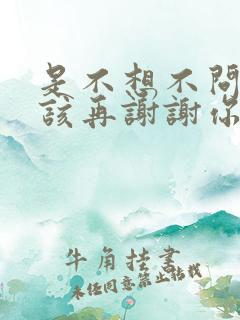 是不想不問
該再謝謝你
牛角挂書
未经同意禁止转载